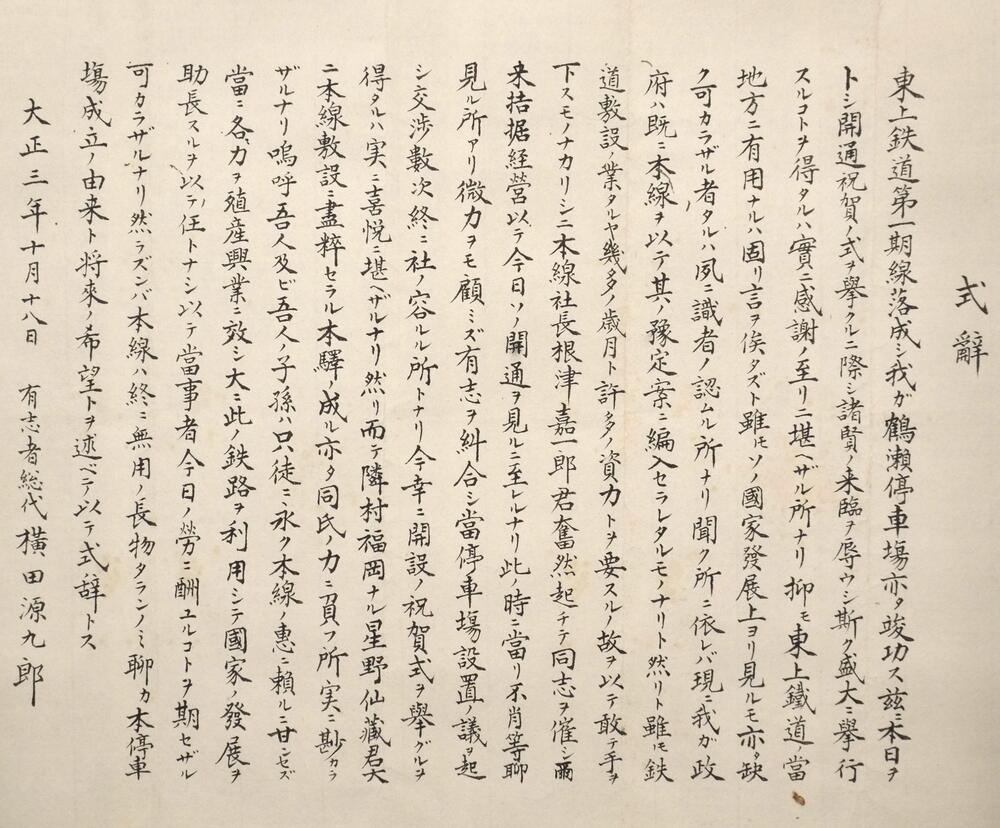 式辭
東上鉄道第一期線落成シ我ガ鶴瀬停車塲亦タ竣功ス茲ニ本日ヲ
トシ開通祝賀ノ式ヲ擧クルニ際シ諸賢ノ来臨ヲ辱ウシ斯ク盛大ニ擧行
スルコトヲ得タルハ實ニ感謝ノ至リニ堪ヘザル所ナリ抑モ東上鐵道當
地方ニ有用ナルハ固リ言ヲ俟タズト雖モソノ國家發展上ヨリ見ルモ亦タ缺
ク可カラザル者タルハ夙ニ識者ノ認ムル所ナリ聞ク所ニ依レバ現ニ我ガ政
府ハ既ニ本線ヲ以テ其ノ豫定案ニ編入セラレタルモノナリト然リト雖モ鉄
道敷設ノ業タルヤ幾多ノ歳月ト許多ノ資力トヲ要スルノ故ヲ以テ敢テ手ヲ
下スモノナカリシニ本線社長根津嘉一郎君奮然起チテ同志ヲ催シ爾
来拮据経営以テ今日ソノ開通ヲ見ルニ至レルナリ此ノ時ニ當リ不肖等聊
見ル所アリ微力ヲモ顧ミズ有志ヲ糾合シ當停車塲設置ノ議ヲ起
シ交渉數次終ニ社ノ容ルル所トナリ今幸ニ開設ノ祝賀式ヲ擧グルヲ
得タルハ実ニ喜悦ニ堪ヘザルナリ然リ而テ隣村福岡ナル星野仙藏君大
ニ本線敷設ニ盡粹セラル本驛ノ成ル亦タ同氏ノ力ニ負フ所実ニ尠カラ
ザルナリ嗚呼吾人及ビ吾人ノ子孫ハ只徒ニ永ク本線ノ惠ニ賴ルニ甘ンセズ
當ニ各力ヲ殖産興業ニ效シ大ニ此ノ鉄路ヲ利用シテ國家ノ發展ヲ
助長スルヲ以テ任トナシ以テ當事者今日ノ勞ニ酬ユルコトヲ期セザル
可カラザルナリ然ラズンバ本線ハ終ニ無用ノ長物タランノミ聊カ本停車
塲成立ノ由来ト将來ノ希望トヲ述ベテ以テ式辞トス
大正三年十月十八日 有志者総代横田源九郎